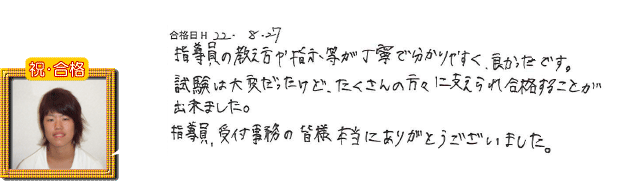 合格日 H 22. 8.27
指導員の教え方や指示等が丁寧で分かりやすく、良かったです。
試験は大変だったけど、たくさんの方々に支えられ合格することが
出来ました。
指導員,受付事務の皆様本当にありがとうございました。
祝・合格